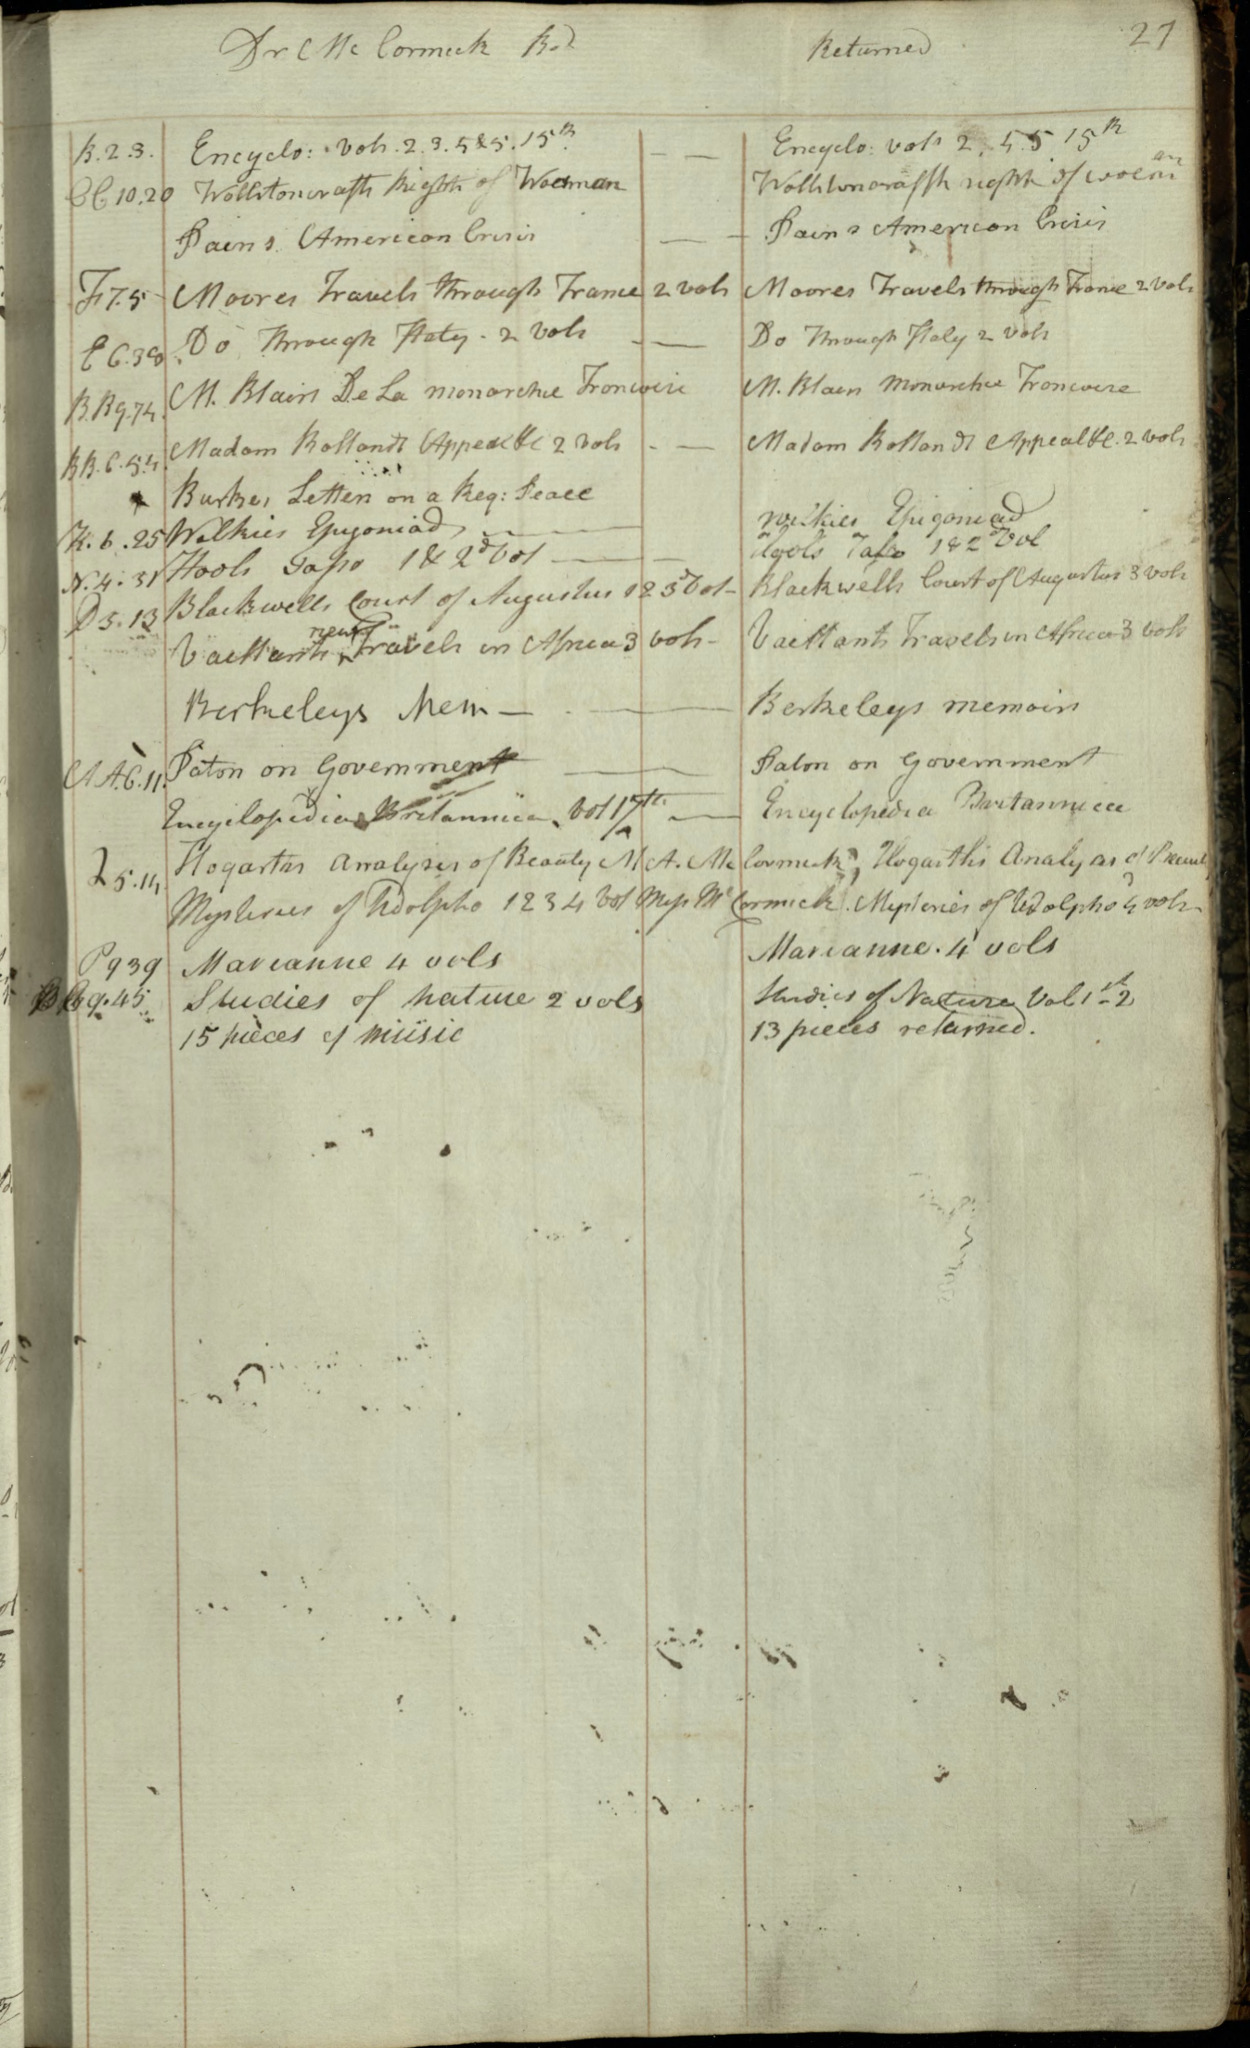 Dr McCormick Rd Returned 27
K.2.3. Encyclo: vols. 2. 3. 5 & 5. 15th Encyclo: vols 2. 5. 5 15th
CC 10.20 Wollstoncrafts Rights of Woeman Wollstoncraffts rights of
Pains American Crisis Pains American Crisis
F 7.5 Moores Travels through France 2 vols Moores Travels through France 2 vols
E 6.38 Do through Italy. 2 vols Do through Italy 2 vols
B.B 9.74. M. Blairs De La monarchie Froncoise M. Blairs monarchie Froncoise
BB.6.54. Madam Rollands Appeal &c 2 vols Madam Rollands Appeal &c. 2 vols
Burkes Letters on a Reg: Peace
K.6.25 Wilkies Epigoniad Wilkies Epigoniad
N.4.31 Hools Tasso 1 & 2d Vol Hools Tasso 1 & 2 Vol
D 5.13 Blackwells Court of Augustus 1 2 3d Vol Blackwells Court of Augustus 3 vols
Vaillants new Travels in Africa 3 vols Vaillants Travels in Africa 3 vols
Berkeleys Mem Berkeleys memoirs
AA.6.11. Paton on Government Paton on Government
Encyclopedia Britannica Vol 17th Encyclopedia Britannica
L 5.14 Hogarths Analyses of Beauty M A. McCormick, Hogarths Analysis of
Mysteries of Udolpho 1 2 3 4 Vol Miss McCormick. Mysteries of Udolpho 4 vols
P 9 39 Marianne 4 vols Marianne. 4 vols
9.45 Studies of nature 2 vols Studies of Nature Vol 1st 2
15 pieces of music 13 pieces returned.